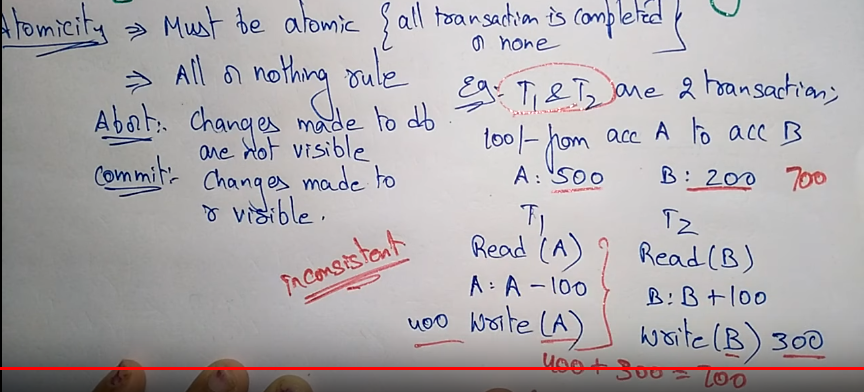 Atomicity ⇒ Must be atomic { all transaction is completed
or none }
⇒ All or nothing rule
Abort:- Changes made to db
are not visible
Commit:- Changes made to
is visible.
inconsistent
Eg:- T1 & T2 are 2 transaction;
100/- from acc A to acc B
A: 500 B: 200 700
T1 T2
Read (A) Read(B)
A: A - 100 B: B + 100
400 Write (A) Write(B) 300
400 + 300 = 700